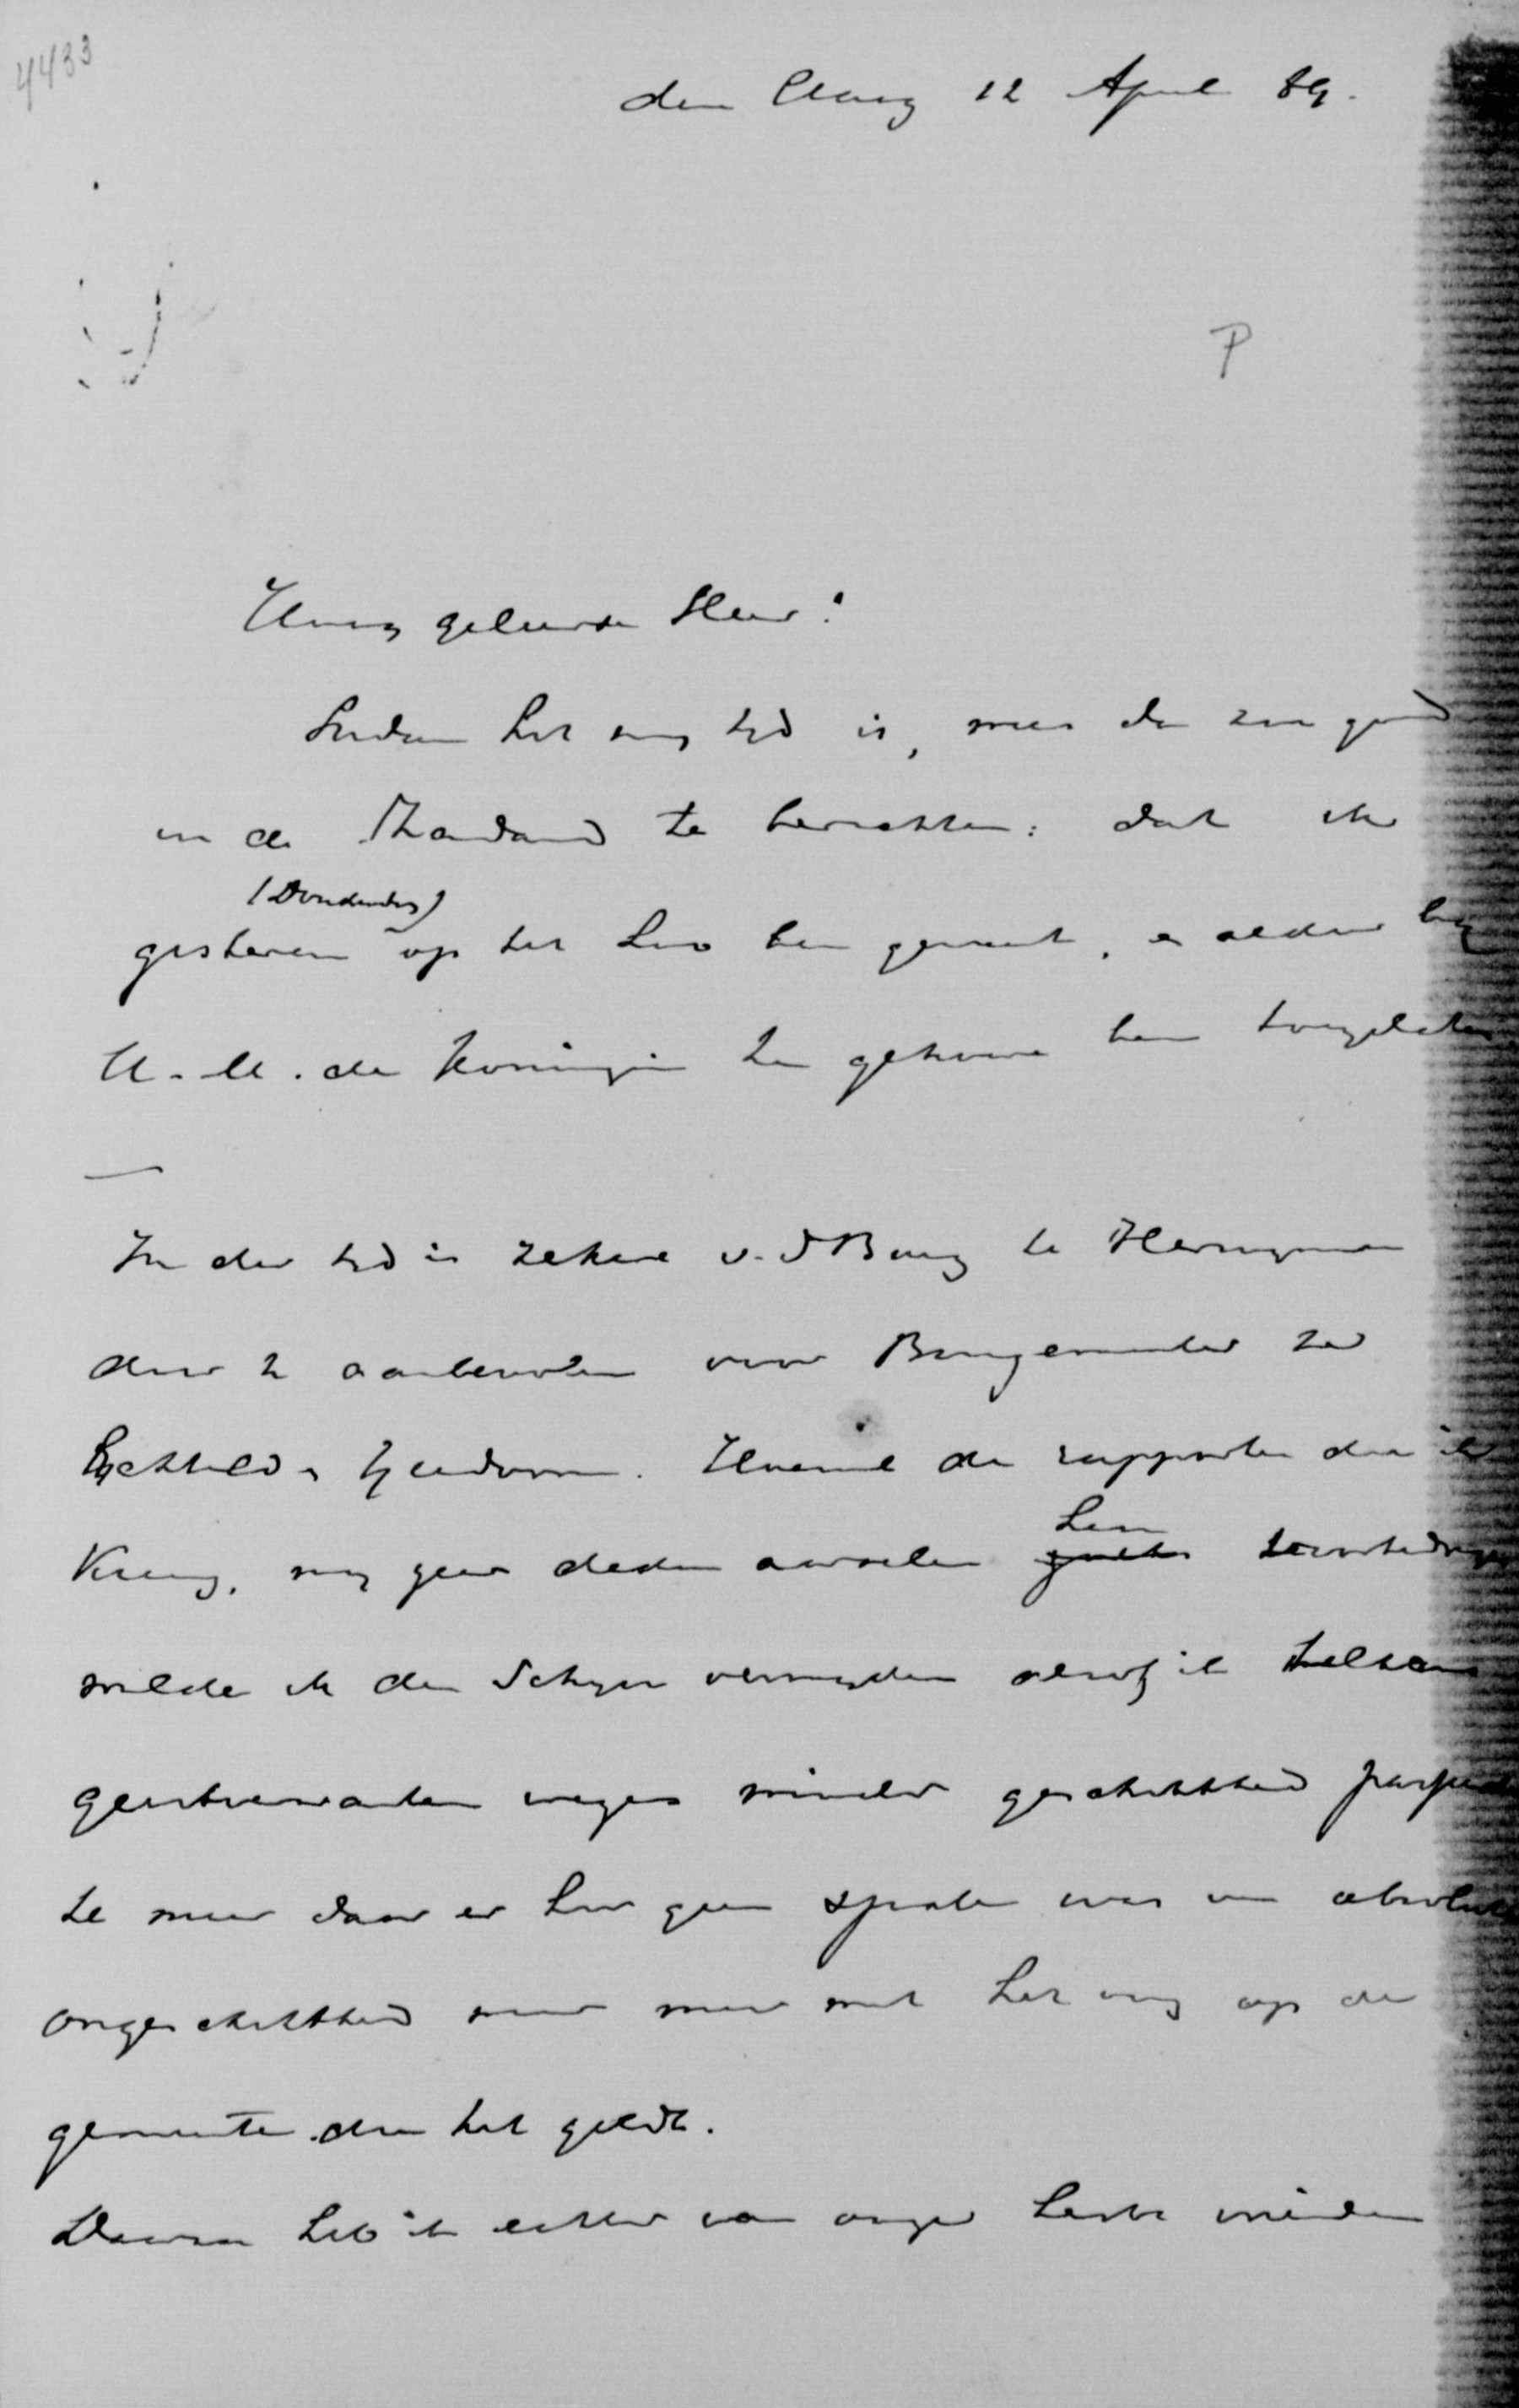 4433
den Haag 12 April 89.
P
Hooggeleerde Heer!
Indien het nog tijd is, meer dan een goed
in de Standaard te berichten: dat ik
(Donderdag)
gisteren op het Loo ben geweest, en aldaar bij
H. M. de Koningin ten gehoore ben toegelaten
—
In der tijd is zekere v. d Berg te
door U aanbevolen voor Burgemeester
Hoewel de rapporten die ik
kreeg, nog geen deden aarzelen hem
wilde ik den schijn vermijden alsof ik telkens
geestverwanten wegens minder geschiktheid passeerde
te meer daar er hier geen sprake was van absolute
ongeschiktheid maar meer met het oog op de
gemeente die het geldt.
Daarna heb ik echter van onze beste vrienden